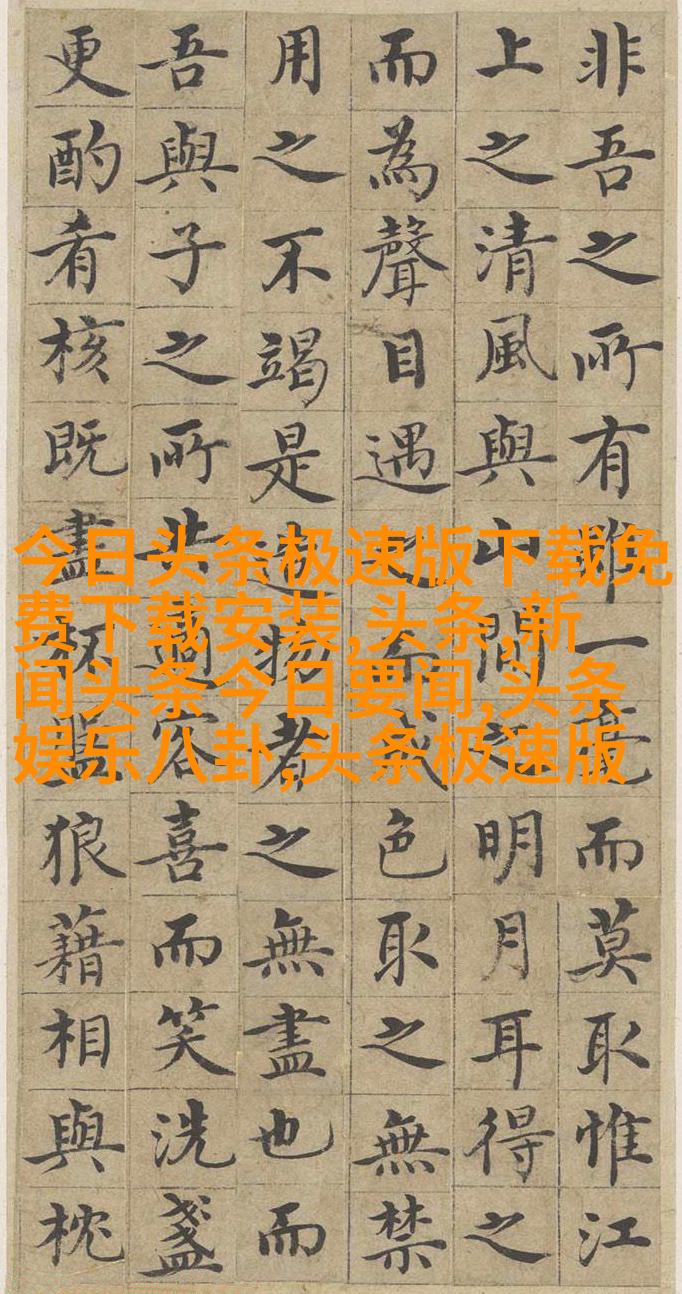 非吾之所有雖一毫而莫取惟江
上之清風與山間之明月耳得之
而為聲目遇之而成色取之無禁
用之不竭是造物者之無盡也而
吾與子之所共適客喜而笑洗盞
更酌肴核既盡杯盤狼藉相與枕
今日头条极速版下载免
费下载安装,头条,新
闻头条今日要闻,头条
娱乐八卦,头条极速版